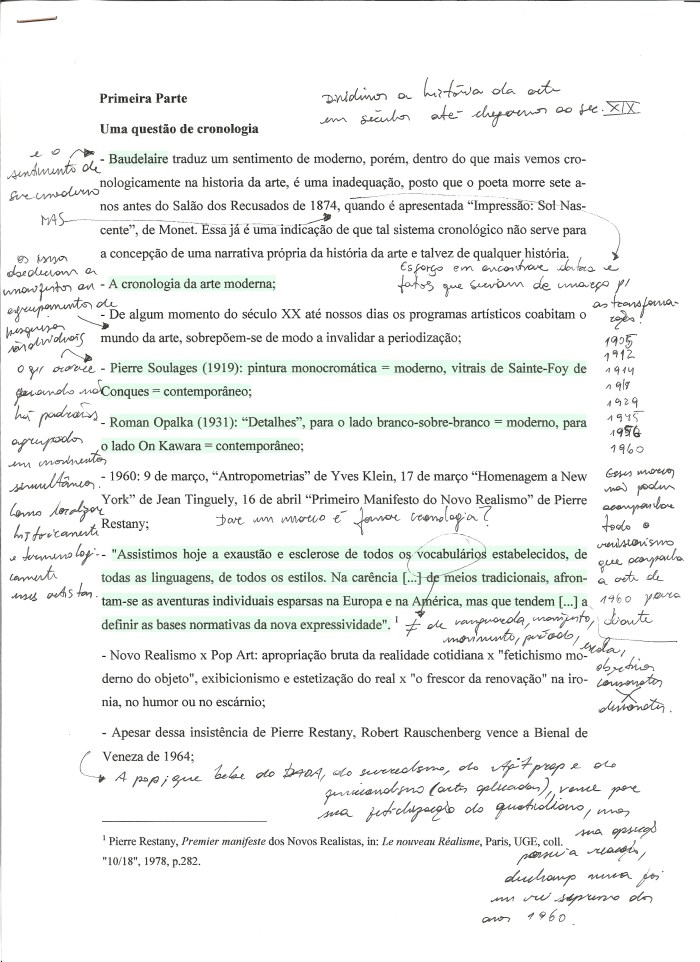 Dividimos a história da arte
em séculos até chegarmos ao séc. XIX
Primeira Parte
Uma questão de cronologia
e o
sentimento de
MAS
- Baudelaire traduz um sentimento de moderno, porém, dentro do que mais vemos cro-
nologicamente na historia da arte, é uma inadequação, posto que o poeta morre sete a-
nos antes do Salão dos Recusados de 1874, quando é apresentada “Impressão: Sol Nas-
cente”, de Monet. Essa já é uma indicação de que tal sistema cronológico não serve para
a concepção de uma narrativa própria da história da arte e talvez de qualquer história.
Esforço em encontrar datas e
fatos que sirvam de março p/
as transforma-
ções!
1905
1912
1914
1917
1929
1945
1956
1960
os ismos
obedeciam a
manifestos an
agrupamentos de
pesquisas
individuais
- A cronologia da arte moderna;
- De algum momento do século XX até nossos dias os programas artísticos coabitam o
mundo da arte, sobrepõem-se de modo a invalidar a periodização;
o que ocorre
quando não
há padrões
agrupados
em movimentos
simultâneos.
Como localizar
historicamente
e terminologi-
camente
esses artistas.
- Pierre Soulages (1919): pintura monocromática = moderno, vitrais de Sainte-Foy de
Conques = contemporâneo;
- Roman Opalka (1931): “Detalhes”, para o lado branco-sobre-branco = moderno, para
o lado On Kawara = contemporâneo;
- 1960: 9 de março, “Antropometrias” de Yves Klein, 17 de março “Homenagem a New
York” de Jean Tinguely, 16 de abril “Primeiro Manifesto do Novo Realismo” de Pierre
Restany;
Dar um março é formar cronologia?
Esses marcos
não podem
acompanhar
todo o
que acompanha
a arte de
1960 para
diante
- "Assistimos hoje a exaustão e esclerose de todos os vocabulários estabelecidos, de
todas as linguagens, de todos os estilos. Na carência [...] de meios tradicionais, afron-
tam-se as aventuras individuais esparsas na Europa e na América, mas que tendem [...] a
definir as bases normativas da nova expressividade". 1
≠ de vanguarda, manifesto,
movimento, período, escola,
objetivos
consonantes
X
dissonantes.
- Novo Realismo x Pop Art: apropriação bruta da realidade cotidiana x "fetichismo mo-
derno do objeto", exibicionismo e estetização do real x "o frescor da renovação" na iro-
nia, no humor ou no escárnio;
- Apesar dessa insistência de Pierre Restany, Robert Rauschenberg vence a Bienal de
Veneza de 1964;
A pop, que bebe do DADA, do surrealismo, do Agit prop e do
(artes aplicadas), vence por
sua fetichização do quotidiano, mas
sua
reação,
duchamp nunca foi
um rei supremo dos
anos 1960.
1 Pierre Restany, Premier manifeste dos Novos Realistas, in: Le nouveau Réalisme, Paris, UGE, coll.
"10/18", 1978, p.282.